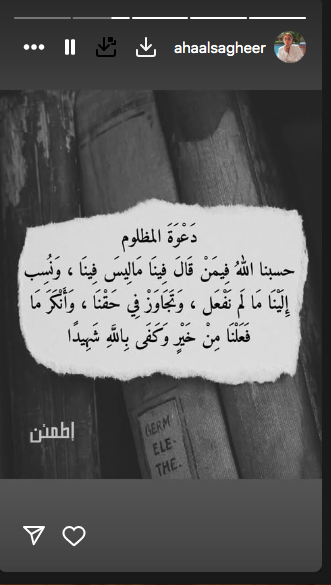 ahaalsagheer
دَعْوَةَ المظلوم
حسبنا اللهُ فِيمَنْ قَالَ فِينَا مَالِيسَ فِينَا ، وَنُسِب
إِلَيْنَا مَا لَم نَفْعَل ، وَتَجَاوَزْ فِي حَقْنَا ، وَأَنْكَرَ مَا
فَعَلْنَا مِنْ خَيْرٍ وَكَفَى بِاللَّهِ شَهِيدًا
إطمئن
GERM.
ELE-
THE.